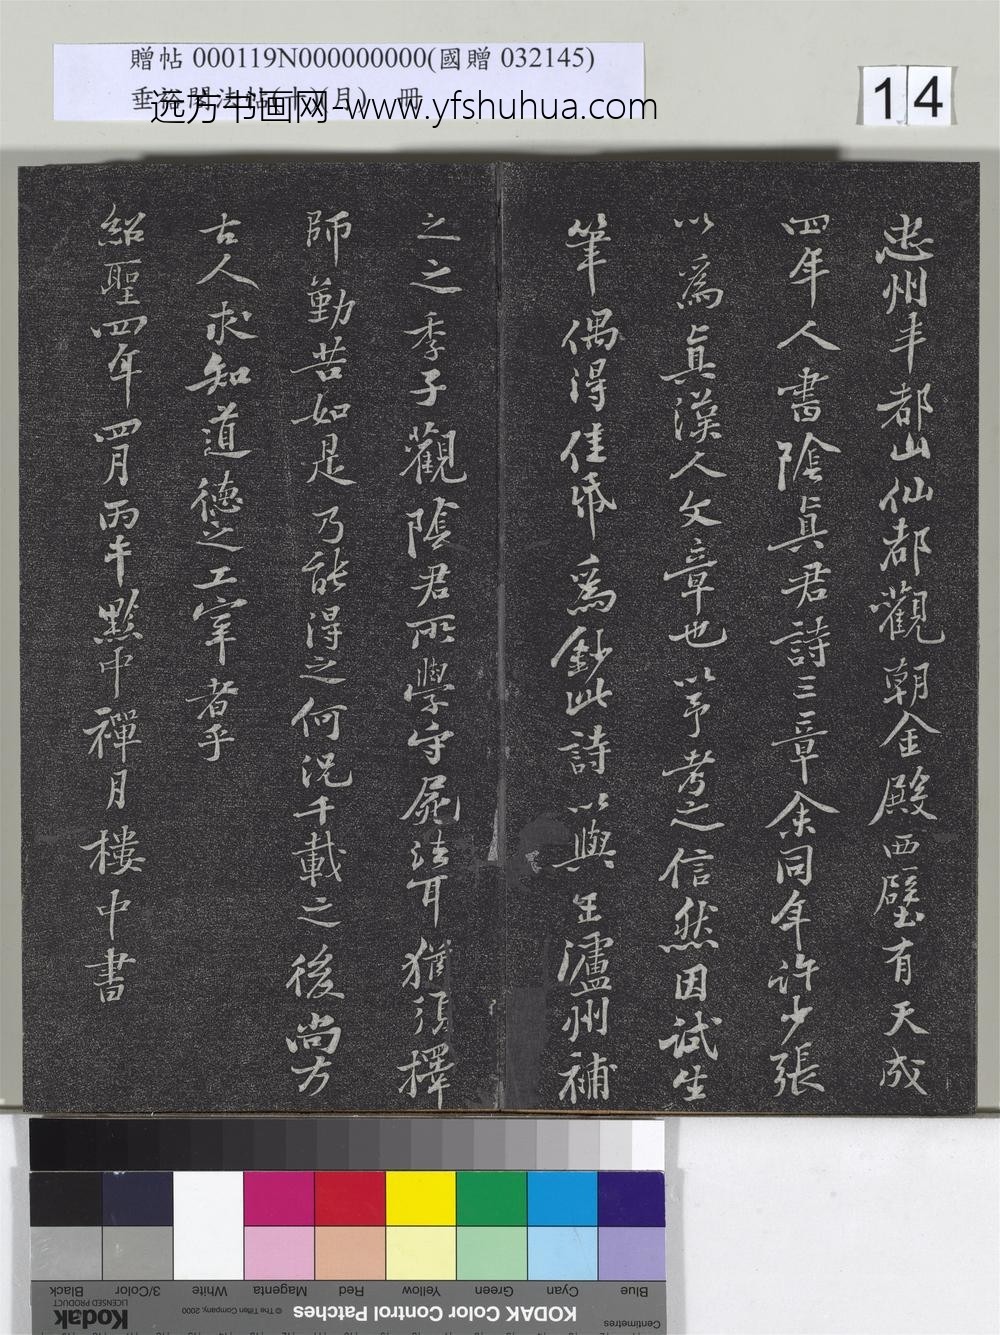 贈帖 000119N000000000(國贈 032145)
远方书画网-www.yfshuhua.com
14
忠州丰都山仙都觀朝金殿西壁有天成
四年人書陰真君詩三章余同年許少張
以為真漢人文章也以予考之信然因試生
筆偶得佳紙為鈔此詩以與王瀘州補
之之季子觀陰君所學守屍法耳猶須擇
師勤苦如是乃能得之何況千載之後尚方
古人求知道德之工宰者乎
紹聖四年四月丙午黔中禪月樓中書
Blue Cyan Green Yellow Red Magenta White 3/Color Black
KODAK Color Control Patches © The Tiffen Company, 2000 Kodak
LICENSED PRODUCT
Centimetres